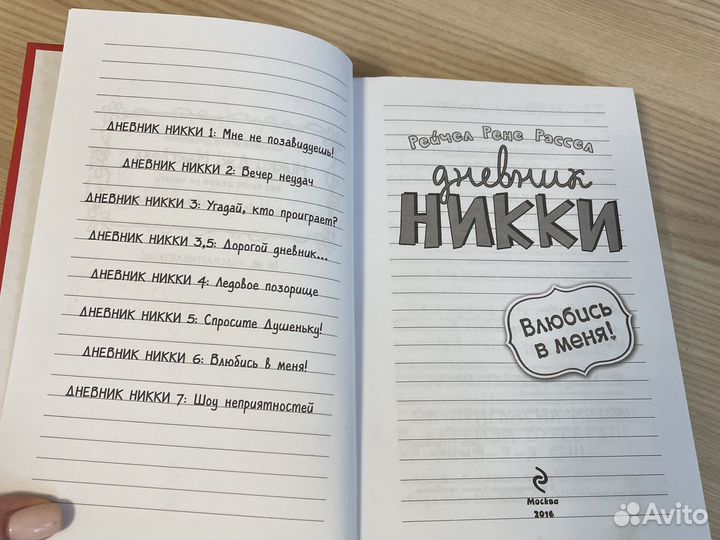 ДНЕВНИК НИККИ 1: Мне не позавидуешь!
ДНЕВНИК НИККИ 2: Вечер неудач
ДНЕВНИК НИККИ 3: Угадай, кто проиграет?
ДНЕВНИК НИККИ 3,5: Дорогой дневник...
ДНЕВНИК НИККИ 4: Ледовое позорище
ДНЕВНИК НИККИ 5: Спросите Душеньку!
ДНЕВНИК НИККИ 6: Влюбись в меня!
ДНЕВНИК НИККИ 7: Шоу неприятностей
Рейчел Рене Рассел
дневник
НИККИ
Влюбись
в меня!
Москва
2016
Avito